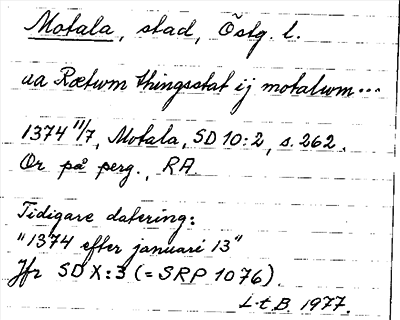 Motala, stad, Östg. l.
aa Rætwm thingsstat ij motalum...
1374 11/7, Motala, SD 10:2, s. 262.
Or på perg., RA.
Tidigare datering:
"1374 efter januari 13"
Jfr SD X:3 (= SRP 1076).
L-t B. 1977.